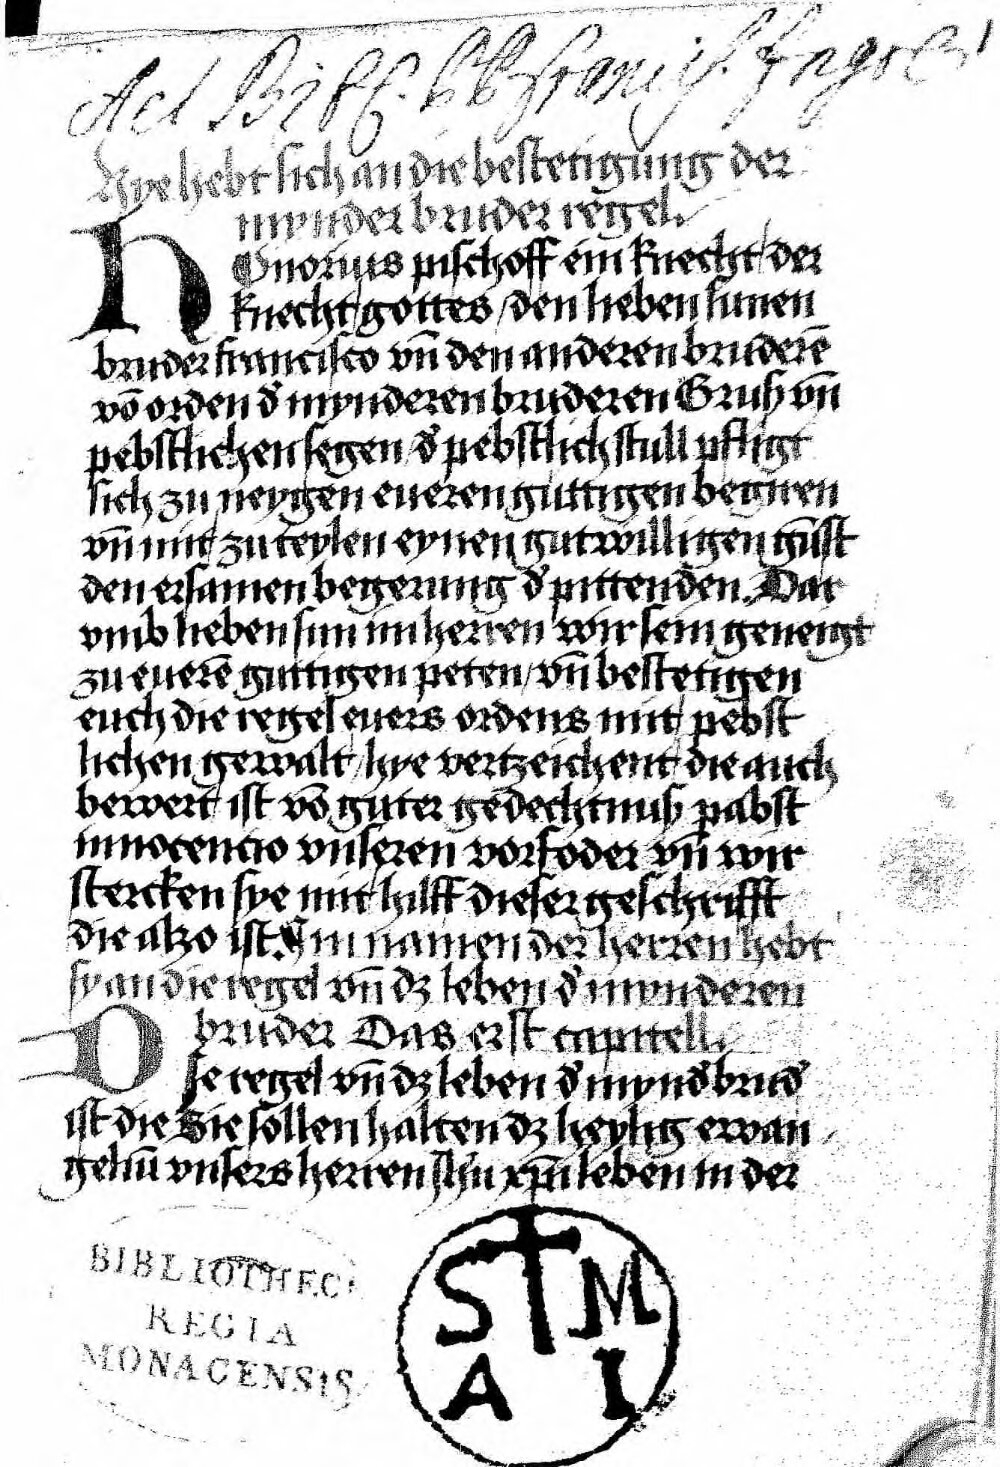 Ad Bibl.
Hye hebt sich an die bestetigung der
mynder bruder regel.
Honorius pischoff ein knecht / der
knecht gottes / den lieben sunen
bruder francisco vn̄ den anderen brudere̅
vo̅ orden d̕ mynderen bruderen Gruß vn̄
pebstlichen segen / d̕ pebstlich stull pfligt
sich zu neygen eueren guttigen begiren
vn̄ mit zu teylen eynen gutwilligen gu̅st
den ersamen begerung d̕ pittenden. Dar
vmb lieben sun im herren wir sein geneigt
zu euere̅ guttigen peten / vn̄ bestetigen
euch die regel euers ordens mit pebst
lichen gewalt / hye vertzeichent / die auch
bewert ist vo̅ guter gedechtnuß pabst
innocencio vnseren vorfoder vn̄ wir
stercken sye mit hilff dieser geschrifft
die alzo ist. Im namen der herren hebt
sy an die regel vn̄ dz leben d̕ mynderen
bruder Das erst capitell.
Die regel vn̄ dz leben d̕ mynd̕ brud̕
ist die Sie sollen halten dz heylig ewan
geliu̅ vnsers herren Jhū xp̄i leben in der
BIBLIOTHECA
REGIA
MONACENSIS
S M
A I